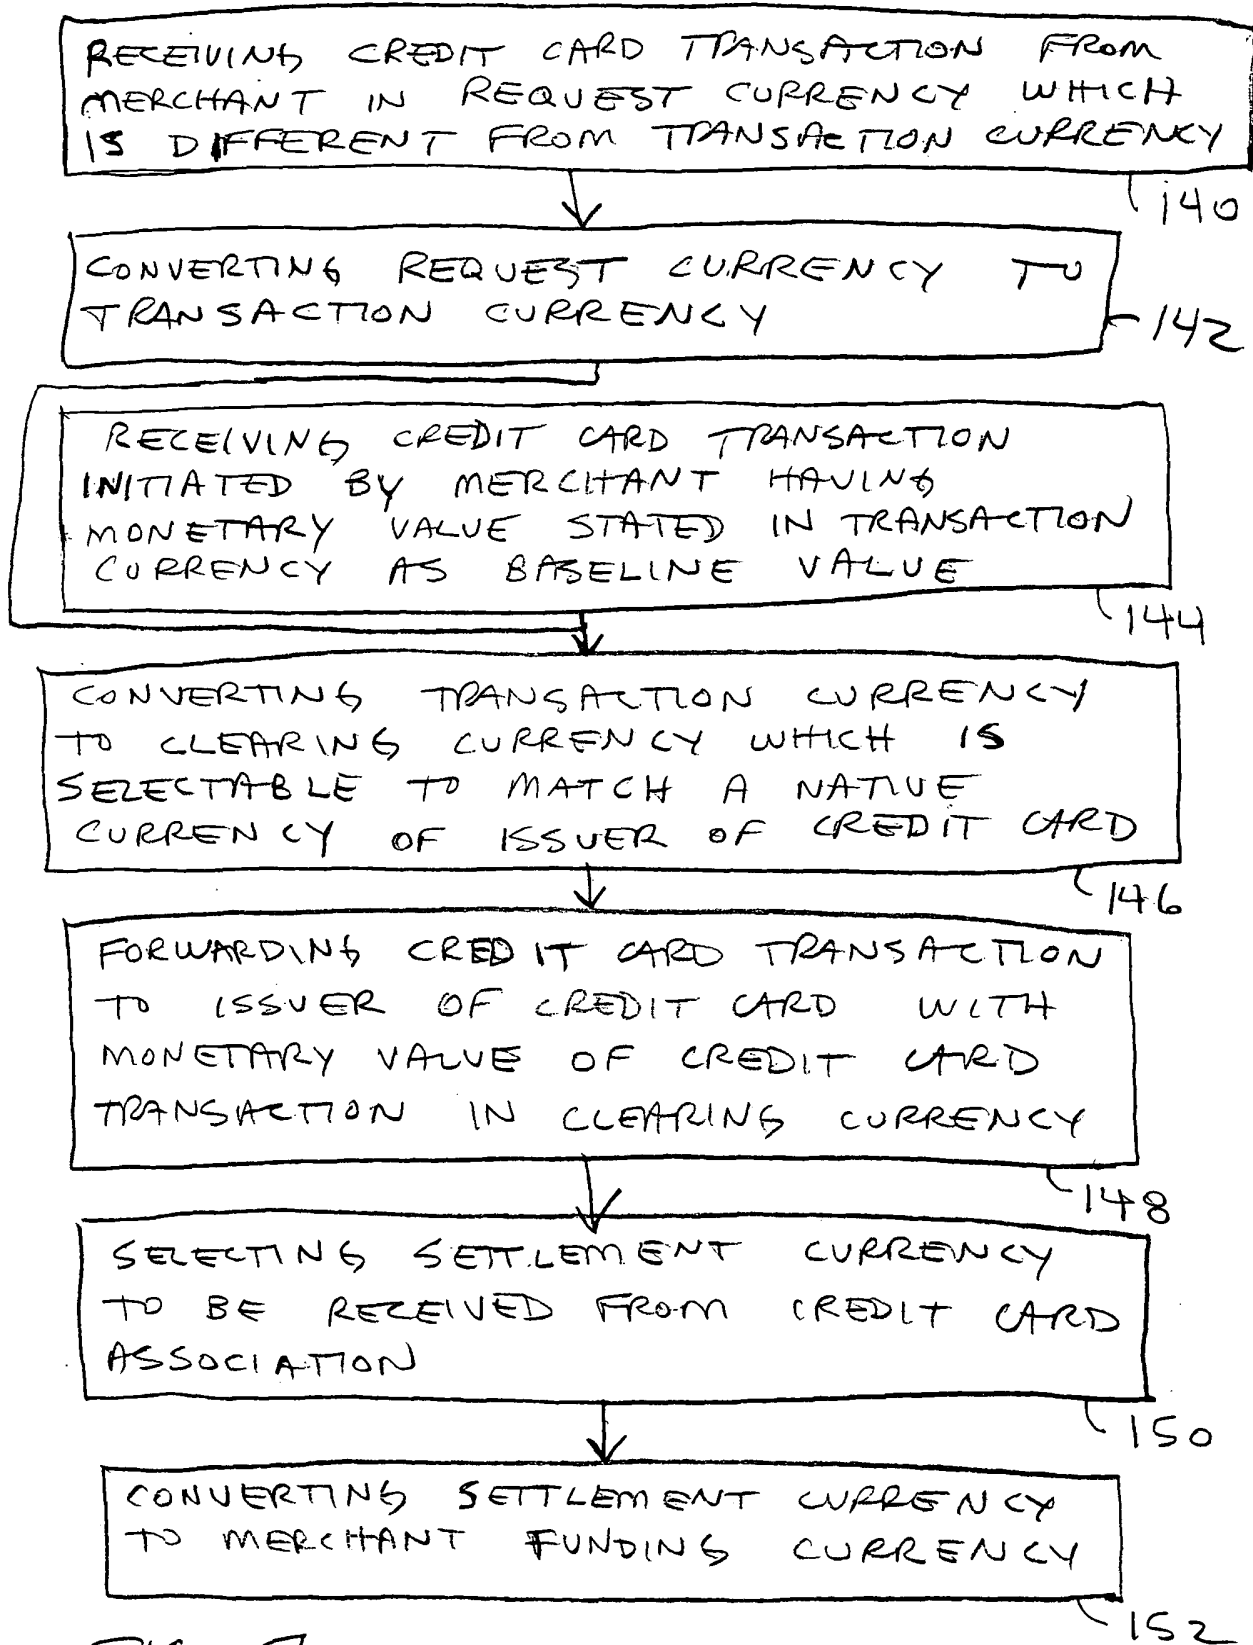 RECEIVING CREDIT CARD TRANSACTION FROM
MERCHANT IN REQUEST CURRENCY WHICH
IS DIFFERENT FROM TRANSACTION CURRENCY
140
CONVERTING REQUEST CURRENCY TO
TRANSACTION CURRENCY
142
RECEIVING CREDIT CARD TRANSACTION
INITIATED BY MERCHANT HAVING
MONETARY VALUE STATED IN TRANSACTION
CURRENCY AS BASELINE VALUE
144
CONVERTING TRANSACTION CURRENCY
TO CLEARING CURRENCY WHICH IS
SELECTABLE TO MATCH A NATIVE
CURRENCY OF ISSUER OF CREDIT CARD
146
FORWARDING CREDIT CARD TRANSACTION
TO ISSUER OF CREDIT CARD WITH
MONETARY VALUE OF CREDIT CARD
TRANSACTION IN CLEARING CURRENCY
148
SELECTING SETTLEMENT CURRENCY
TO BE RECEIVED FROM CREDIT CARD
ASSOCIATION
150
CONVERTING SETTLEMENT CURRENCY
TO MERCHANT FUNDING CURRENCY
152